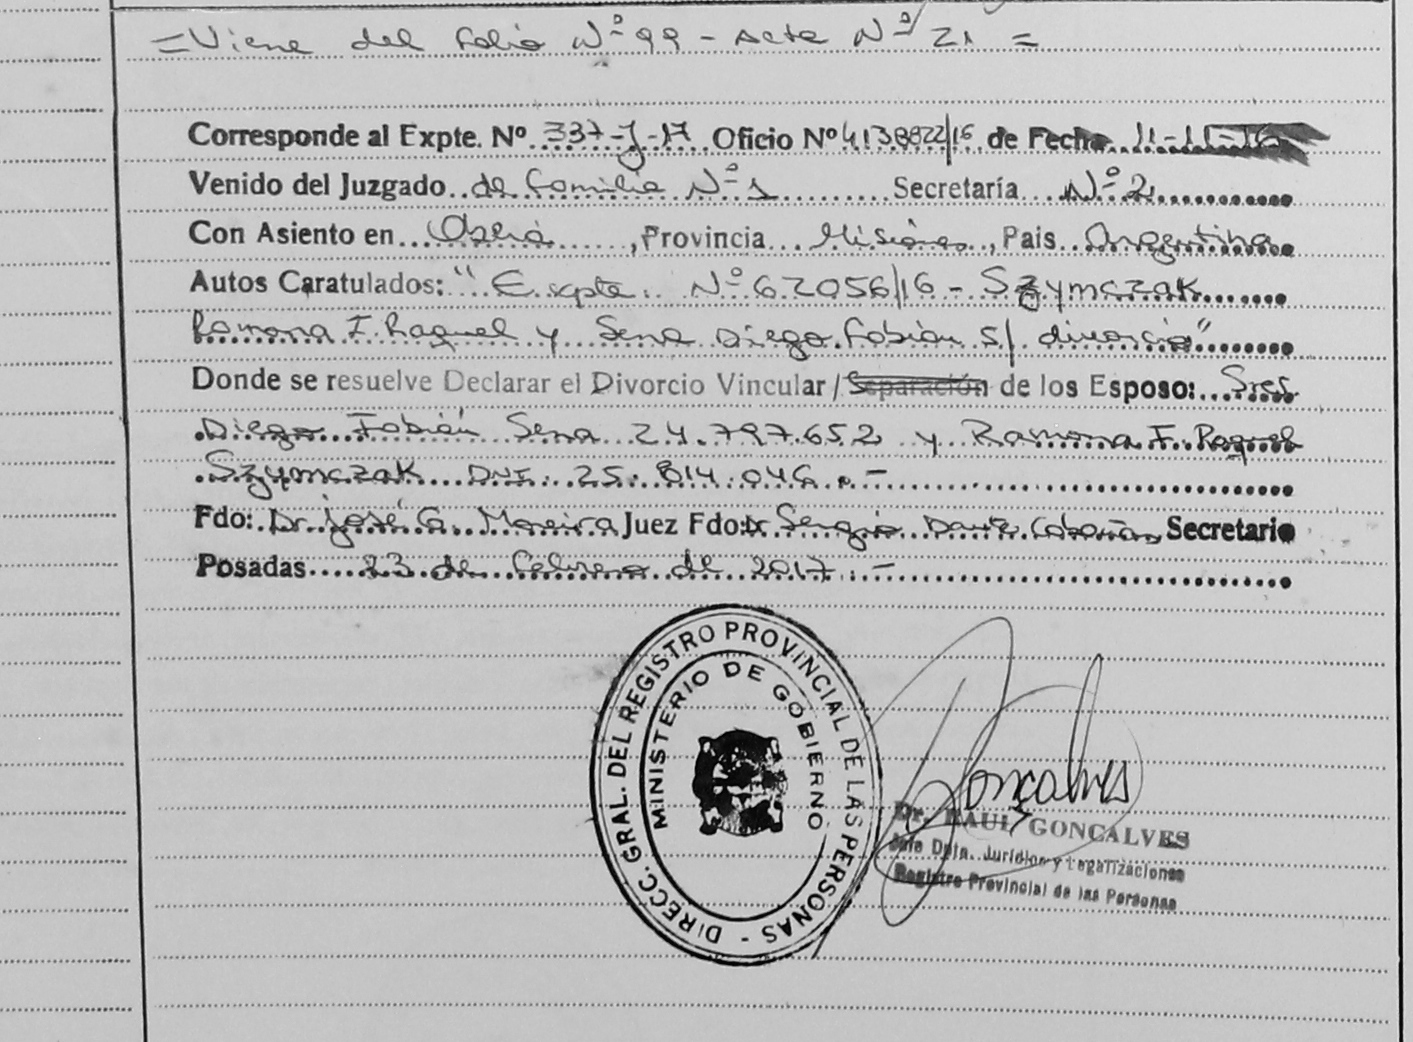 =Viene del folio Nº 99 - Acta Nº 21 =
Corresponde al Expte. Nº 337-J-17 Oficio Nº 4138822/16 de Fecha 11-11-16
Venido del Juzgado de Familia Nº 1 Secretaría Nº 2
Con Asiento en Oberá, Provincia Misiones, Pais Argentina
Autos Caratulados: "Expte. Nº 62056/16 - Szymczak
Ramona F. Raquel y Sena Diego Fabián s/ divorcio"
Donde se resuelve Declarar el Divorcio Vincular/Separación de los Esposo: Sres
Diego Fabián Sena 24.797.652 y Ramona F. Raquel
Szymczak DNI 25.814.046.-
Fdo: Dr José G. Moreira Juez Fdo: Dr Sergio Dante Cabañas Secretario
Posadas 23 de febrero de 2017.-
DIRECC. GRAL. DEL REGISTRO PROVINCIAL DE LAS PERSONAS -
MINISTERIO DE GOBIERNO
Gonçalves
Dr. RAUL GONCALVES
Jefe Dpto. Jurídico y Legalizaciones
Registro Provincial de las Personas